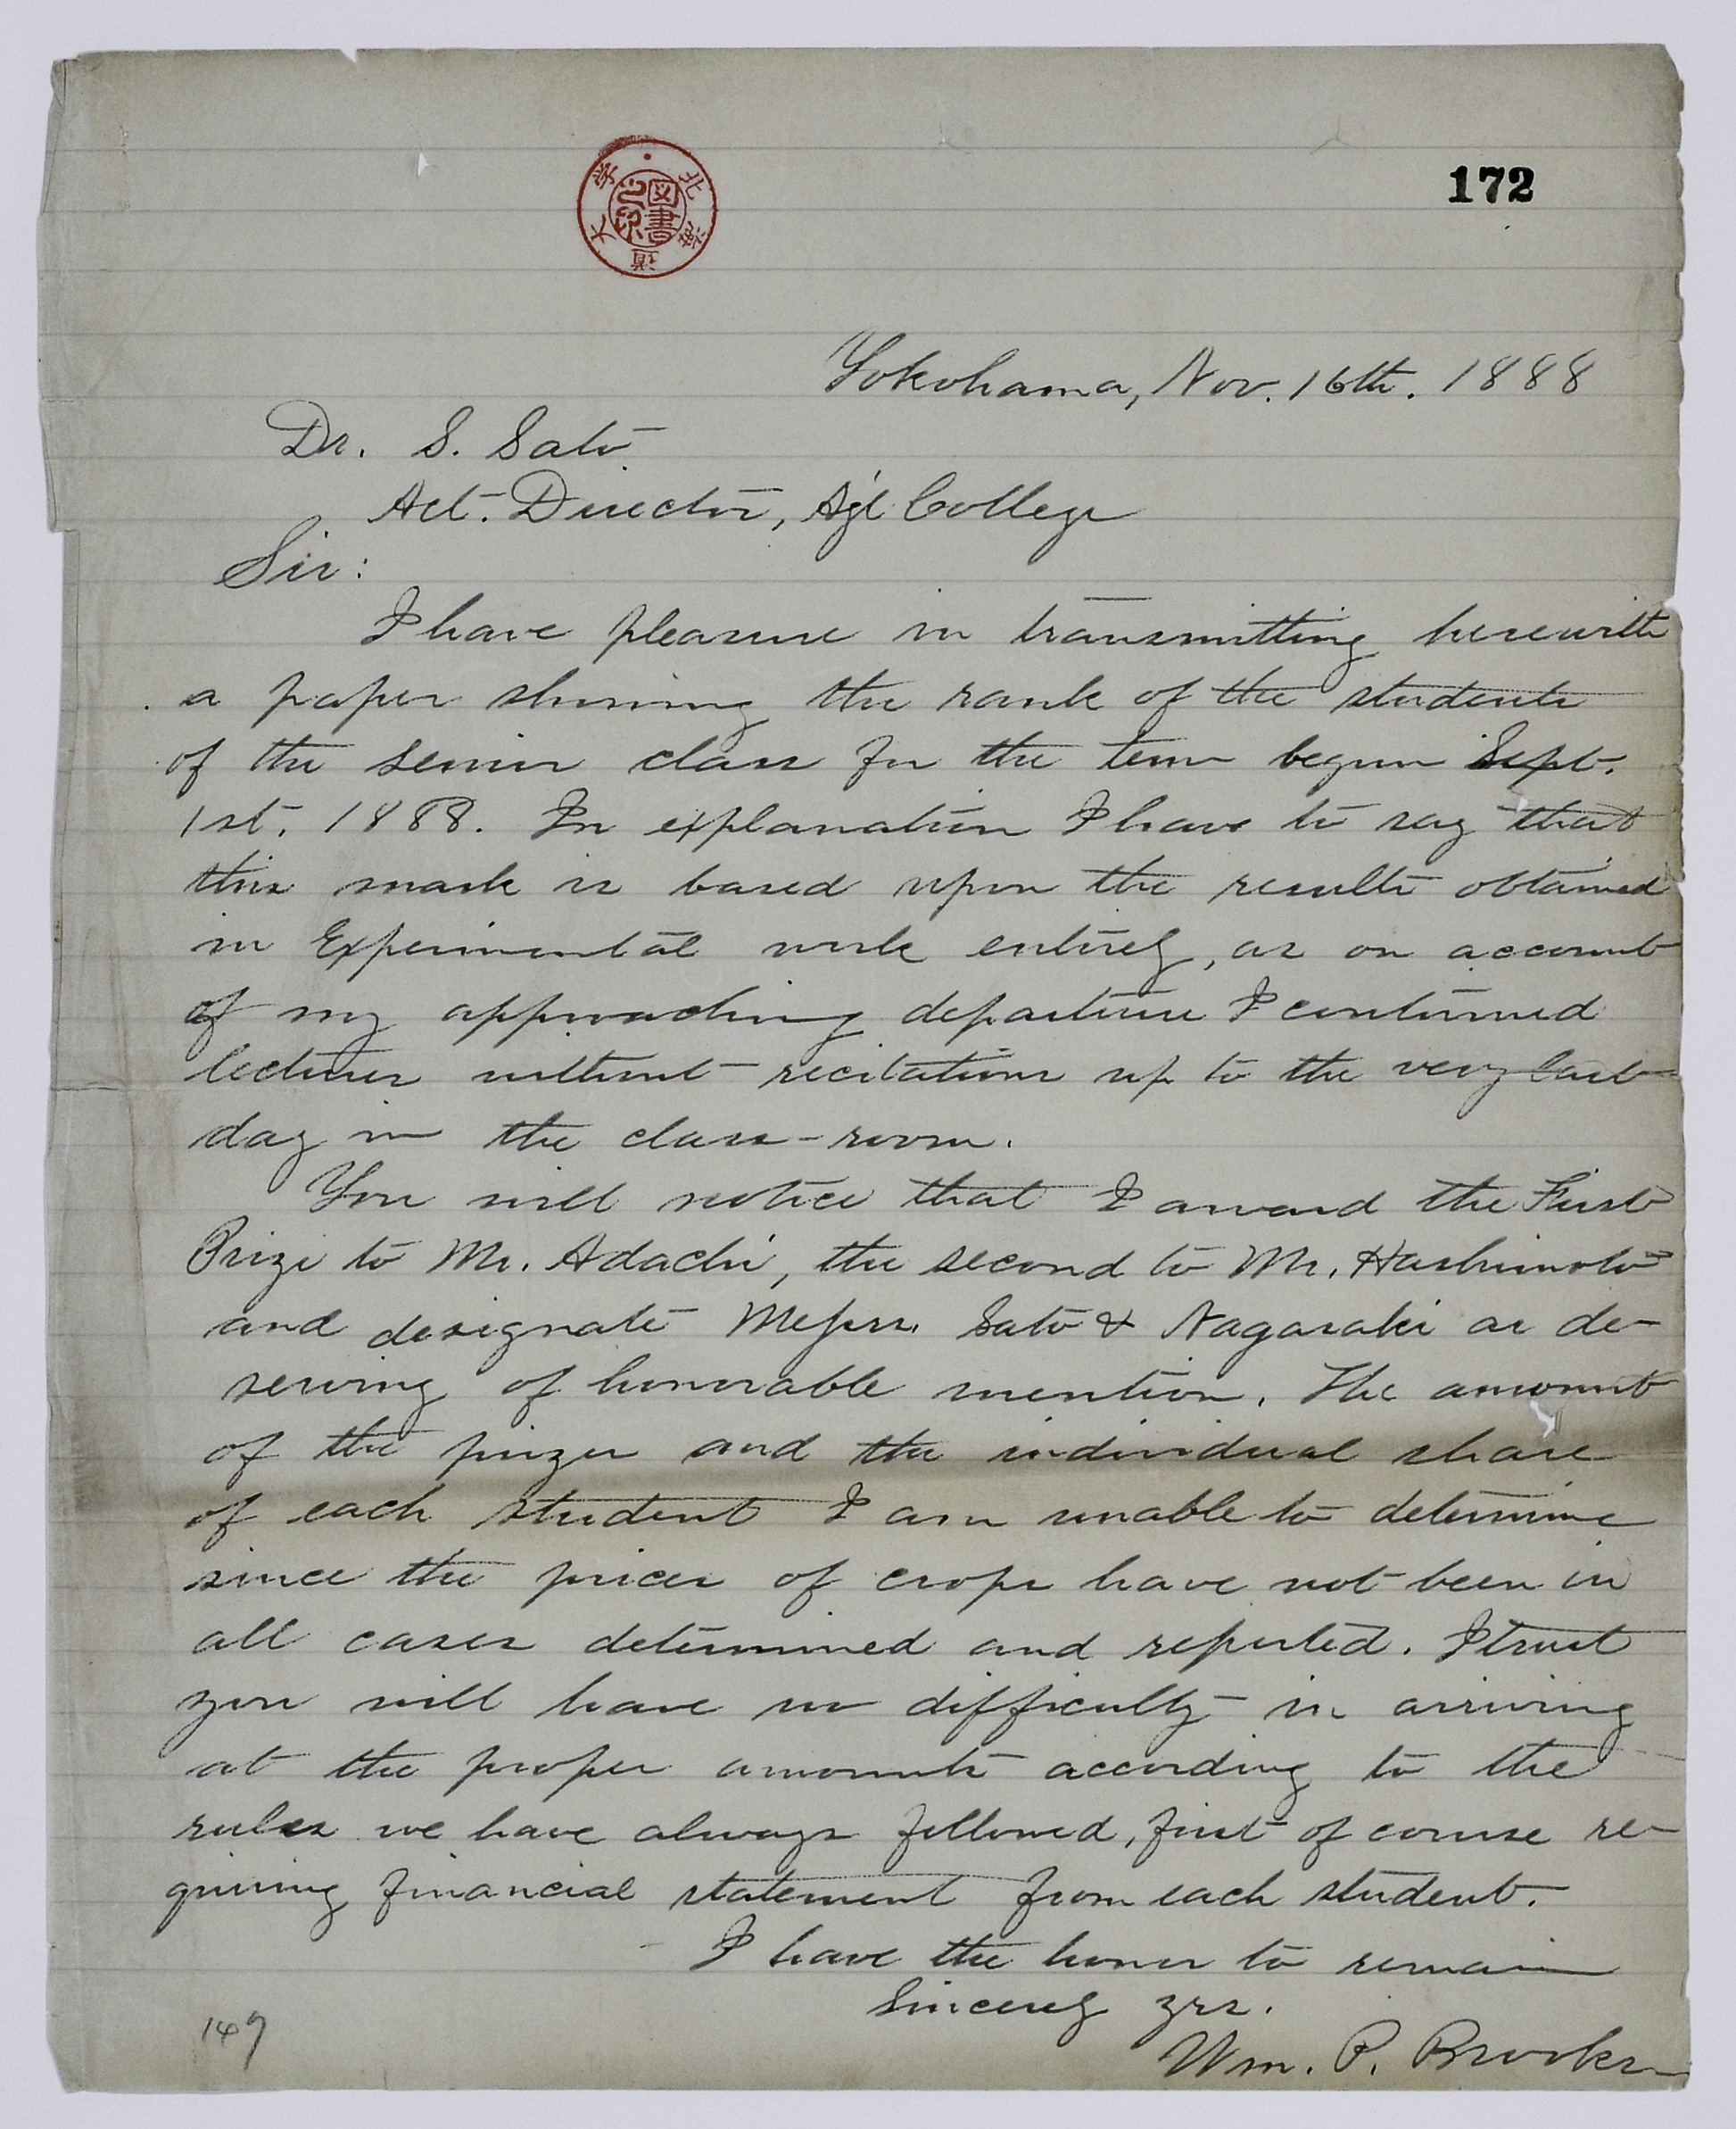 172
北海道大学
図書之印
Yokohama, Nov. 16th. 1888
Dr. S. Sato
Act. Director, Ag'l College
Sir:
I have pleasure in transmitting herewith
a paper showing the rank of the students
of the senior class for the term begun Sept.
1st. 1888. In explanation I have to say that
this mark is based upon the results obtained
in Experimental work entirely, as on account
of my approaching departure I continued
lectures without recitations up to the very last
day in the class-room.
You will notice that I award the First
Prize to Mr. Adachi, the second to Mr. Hashimoto
and designate Messrs. Sato & Nagasaki as de-
serving of honorable mention. The amount
of the prizes and the individual share
of each student I am unable to determine
since the prices of crops have not been in
all cases determined and reported. I trust
you will have no difficulty in arriving
at the proper amounts according to the
rules we have always followed, first of course re-
quiring financial statement from each student.
I have the honor to remain
Sincerely yrs.
Wm. P. Brooks
149